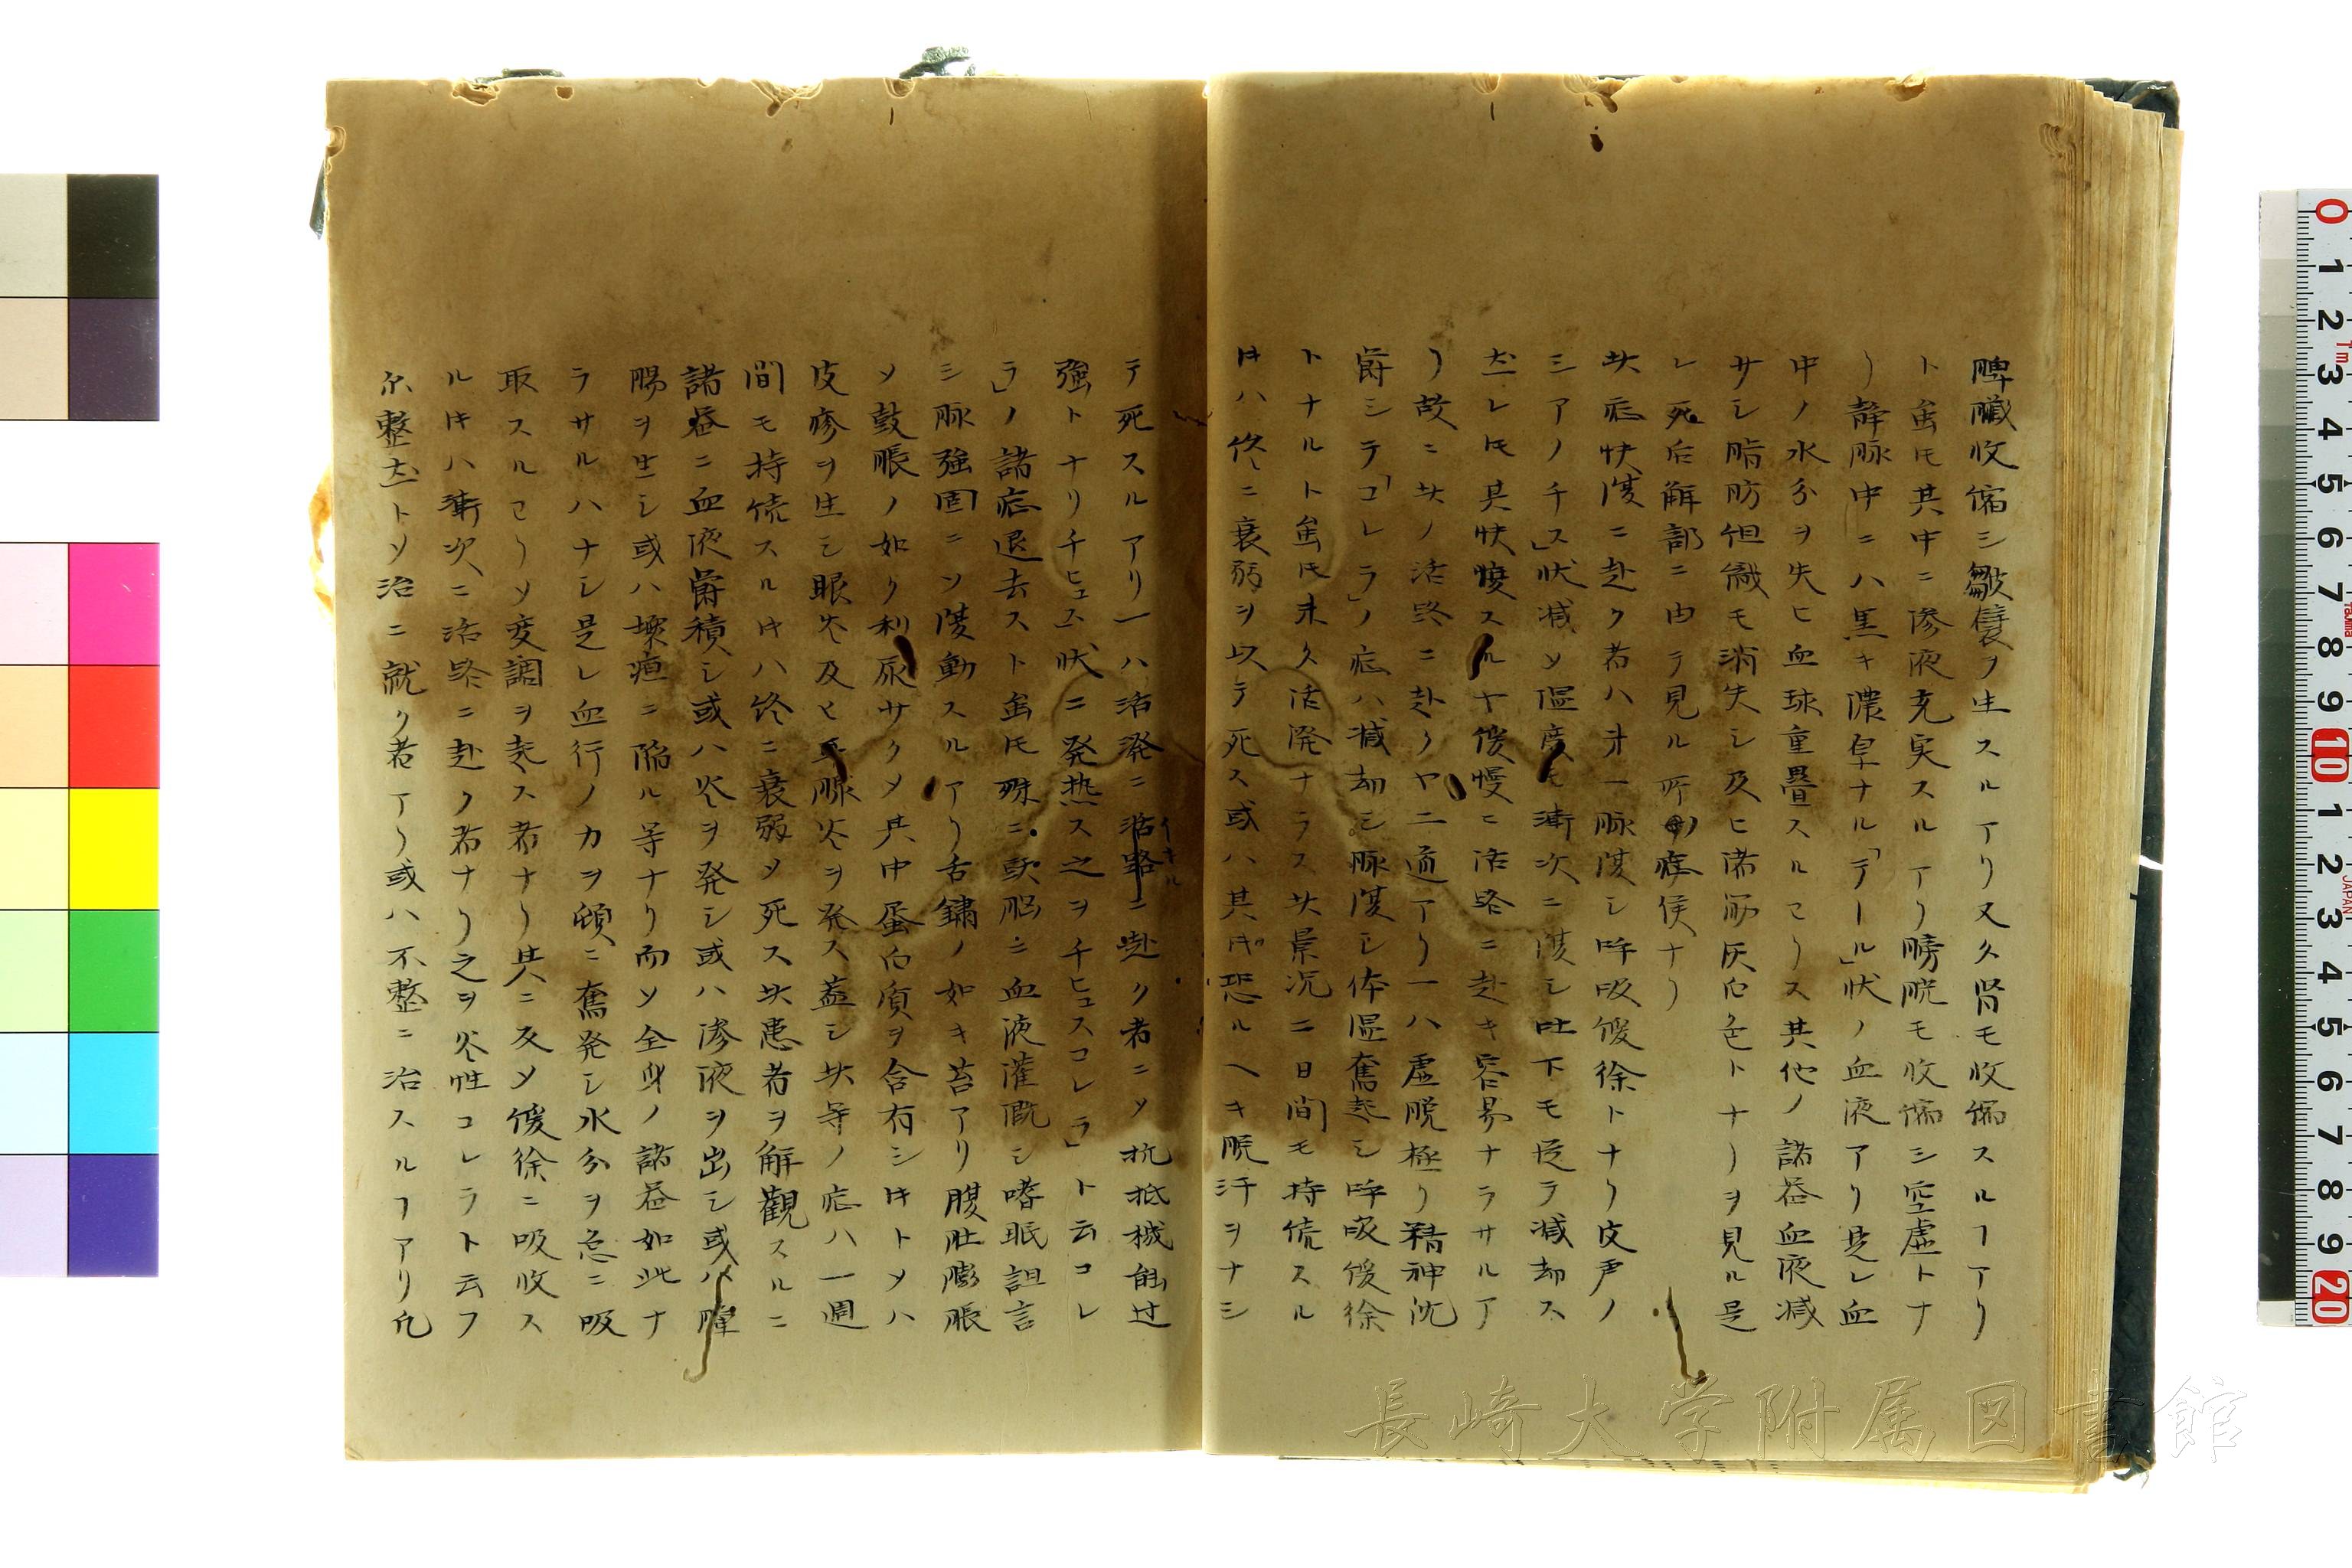 脾臓收縮シ皺襞ヲ生スルアリ又久腎モ收縮スルヿアリ
ト雖𪜈其中ニ滲液充実スルアリ膀胱モ收縮シ空虚トナ
リ静脉中ニハ黒キ濃厚ナル「テール」状ノ血液アリ是レ血
中ノ水分ヲ失ヒ血球重畳スルヿリス其他ノ諸器血液減
サシ脂肪但織モ消失シ及ヒ諸部灰白色トナリヲ見ル是
レ死后解部ニ由テ見ル所ノ症侯ナリ
此症快復ニ赴ク者ハ才一脉復シ呼吸緩徐トナリ皮戸ノ
シアノチス」状減ソ温度モ漸次ニ復シ吐下モ従テ減却ス
然レ𪜈其快復スルヤ緩慢ニ活路ニ赴キ容易ナラサルア
リ故ニ此ノ活路ニ赴クヤ二道アリ一ハ虚脱極リ精神沈
欝シテ「コレラ」ノ症ハ減却シ脉復シ体温奮起シ呼吸緩徐
トナルト雖𪜈未タ活溌ナラス此景況二日間モ持続スル
𪜈ハ終ニ衰弱ヲ以テ死ス或ハ其恐ルヘキ脱汗ヲナシ
テ死スルアリ一ハ活溌ニ活路ニ赴ク者ニソ抗抵機能过
強トナリチヒュス状ニ発热ス之ヲチヒュスコレラ」ト云コレ
ラ」ノ諸症退去スト雖𪜈殊ニ頭脳ニ血液灌漑シ嗜眠詛言
シ脉強固ニソ復動スルアリ舌鏽ノ如キ苔アリ腹肚膨脹
ソ鼓脹ノ如ク利尿サクソ其中蛋白質ヲ含有シ𪜈トソハ
皮疹ヲ生シ眼炎及ヒ耳脉炎ヲ発ス蓋シ此等ノ症ハ一週
間モ持続スル𪜈ハ終ニ衰弱ソ死ス此患者ヲ解觀スルニ
諸器ニ血液欝積シ或ハ炎ヲ発シ或ハ滲液ヲ出シ或ハ膿
腸ヲ生シ或ハ壊疽ニ陥ル等ナリ而ソ全身ノ諸器如此ナ
ラサルハナシ是レ血行ノ力ヲ頓ニ奮発シ水分ヲ急ニ吸
取スルヿリソ变調ヲ起ス者ナリ其ニ反ソ緩徐ニ吸收ス
ル𪜈ハ漸次ニ活路ニ赴ク者ナリ之ヲ炎性コレラト云フ
尓整然トソ治ニ就ク者アリ或ハ不整ニ治スルヿアリ凢
長崎大学附属図書館